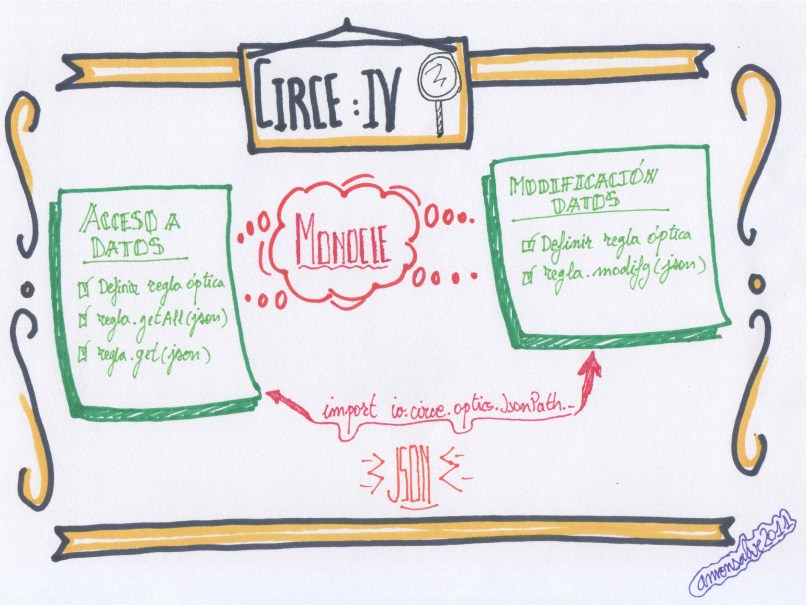 CIRCE : IV
ACCESO A
DATOS
Definir regla óptica
regla.getAll(json)
regla.get(json)
MONOCLE
MODIFICACIÓN
DATOS
Definir regla óptica
regla.modify(json)
import io.circe.optics.JsonPath._
JSON